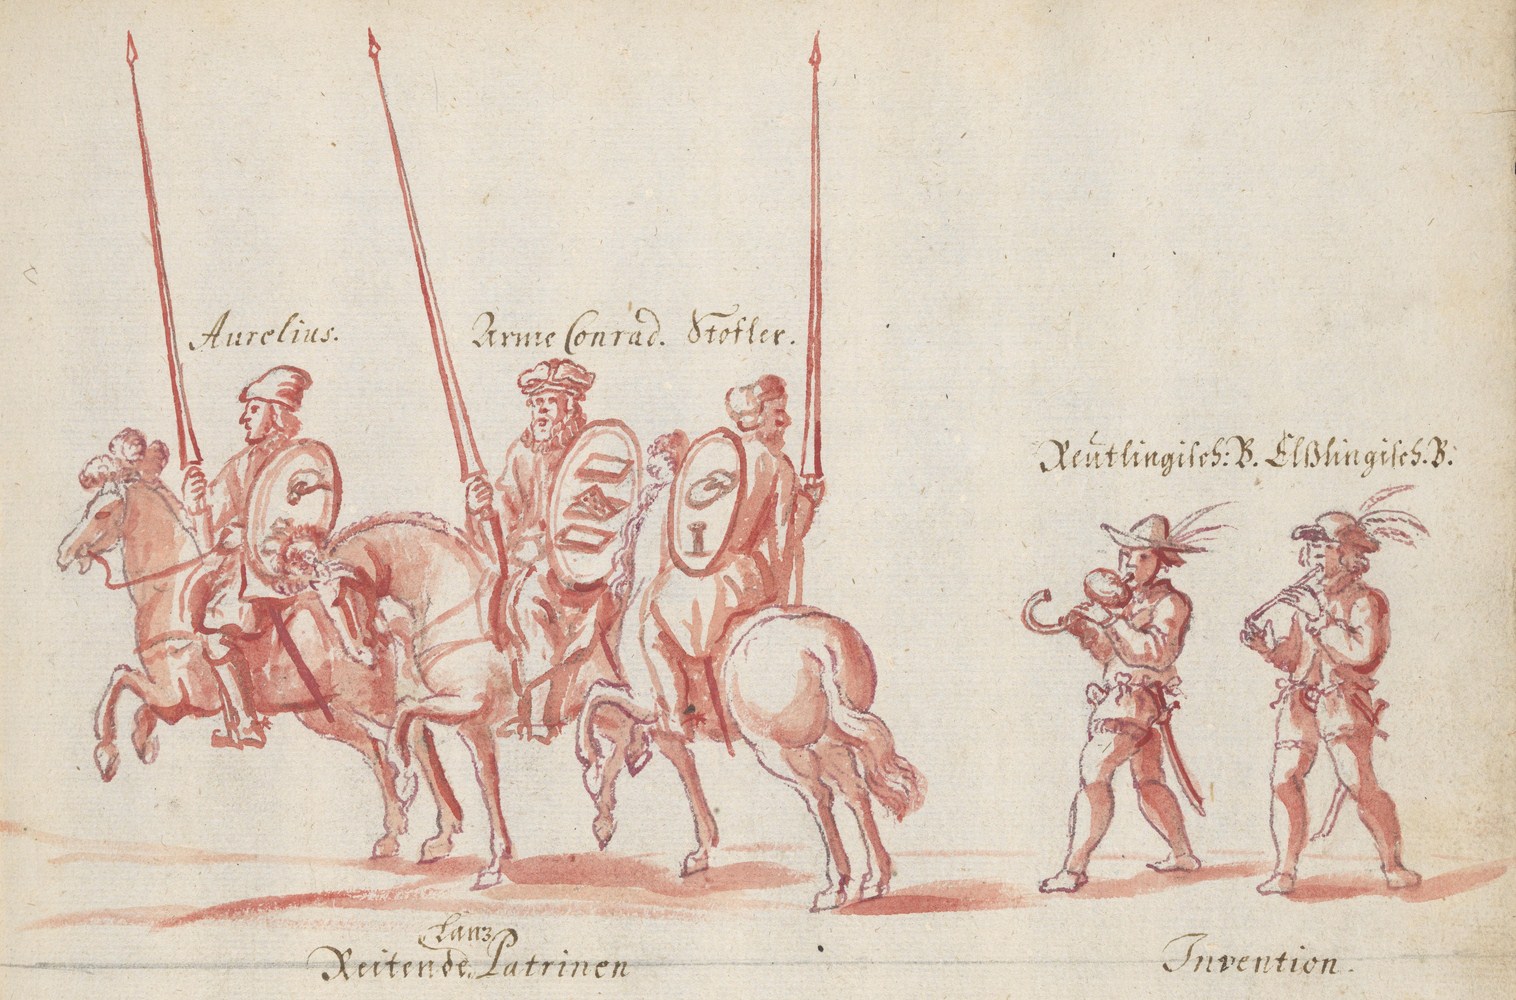 Aurelius.
Arme Conrad. Stofler.
Reutlingisch: B. Eßlingisch. B:
Lanz
Reitende Patrinen
Invention.